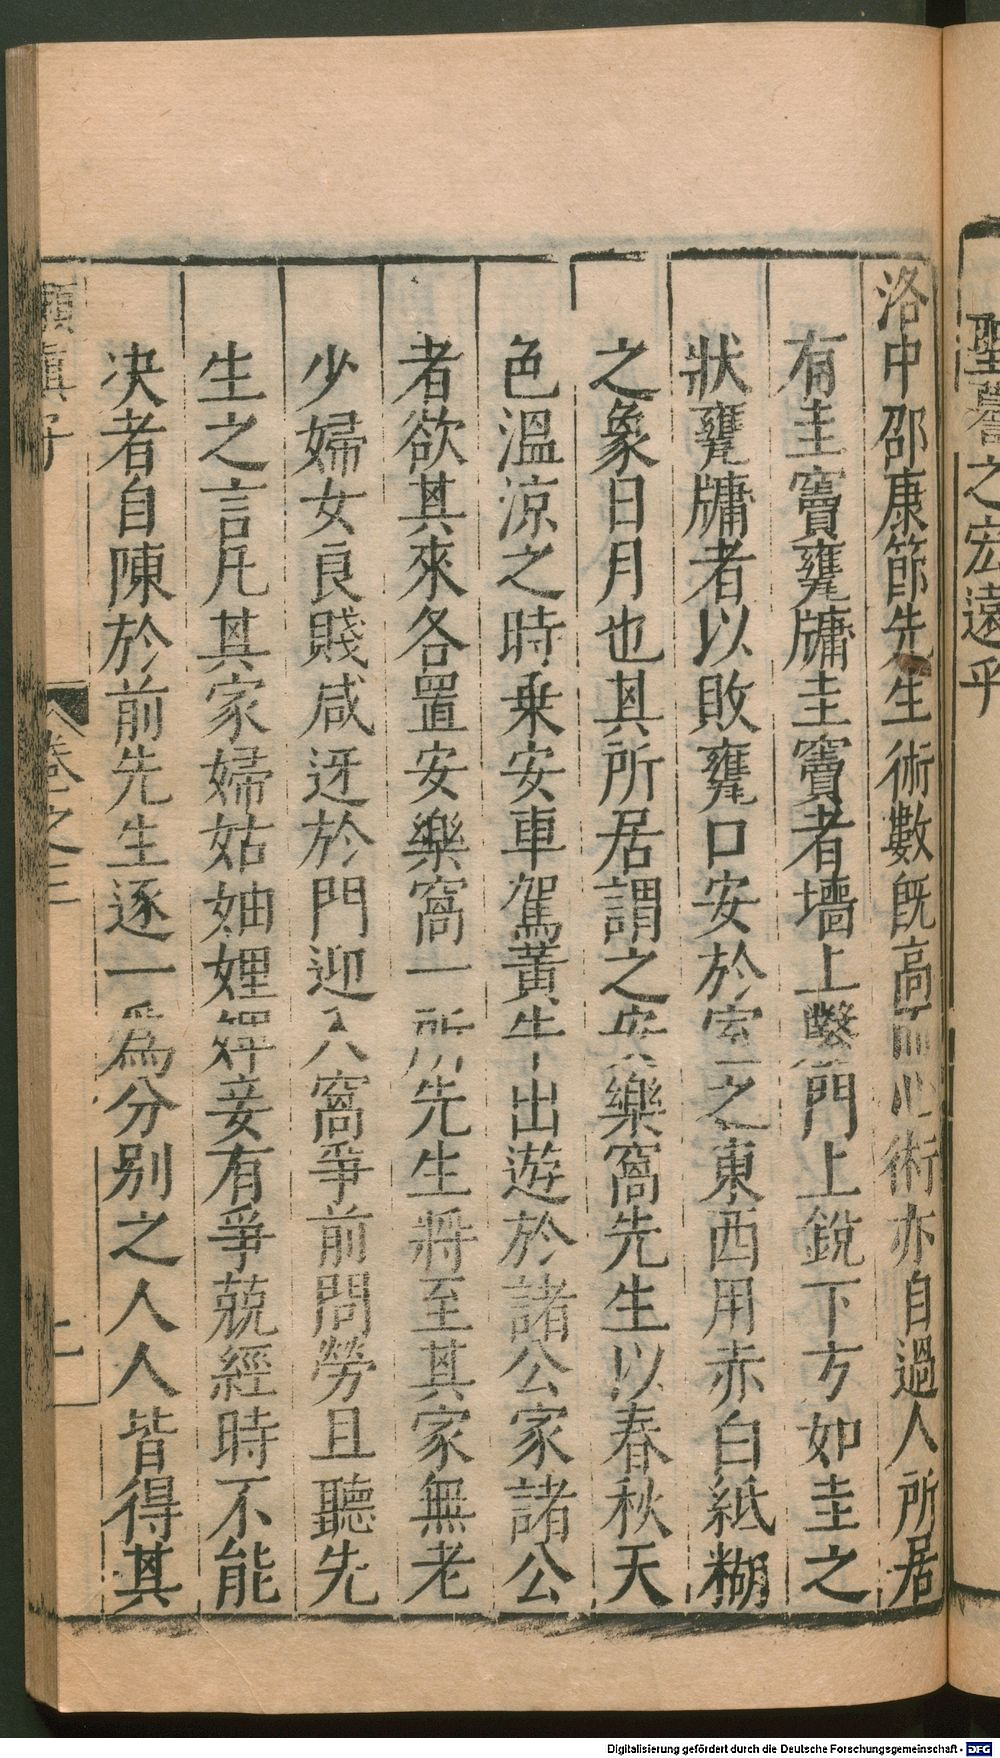 聖譽之宏遠乎
洛中邵康節先生術數旣高而心術亦自過人所居
有圭竇甕牖圭竇者墻上鑿門上銳下方如圭之
狀甕牖者以敗甕口安於室之東西用赤白紙糊
之象日月也其所居謂之安樂窩先生以春秋天
色溫涼之時乗安車駕黃牛出遊於諸公家諸公
者欲其來各置安樂窩一所先生將至其家無老
少婦女良賤咸迓於門迎入窩爭前問勞且聽先
生之言凡其家婦姑妯娌婢妾有爭兢經時不能
决者自陳於前先生逐一爲分别之人人皆得其
嬾眞子 卷之三 上
Digitalisierung gefördert durch die Deutsche Forschungsgemeinschaft - DFG